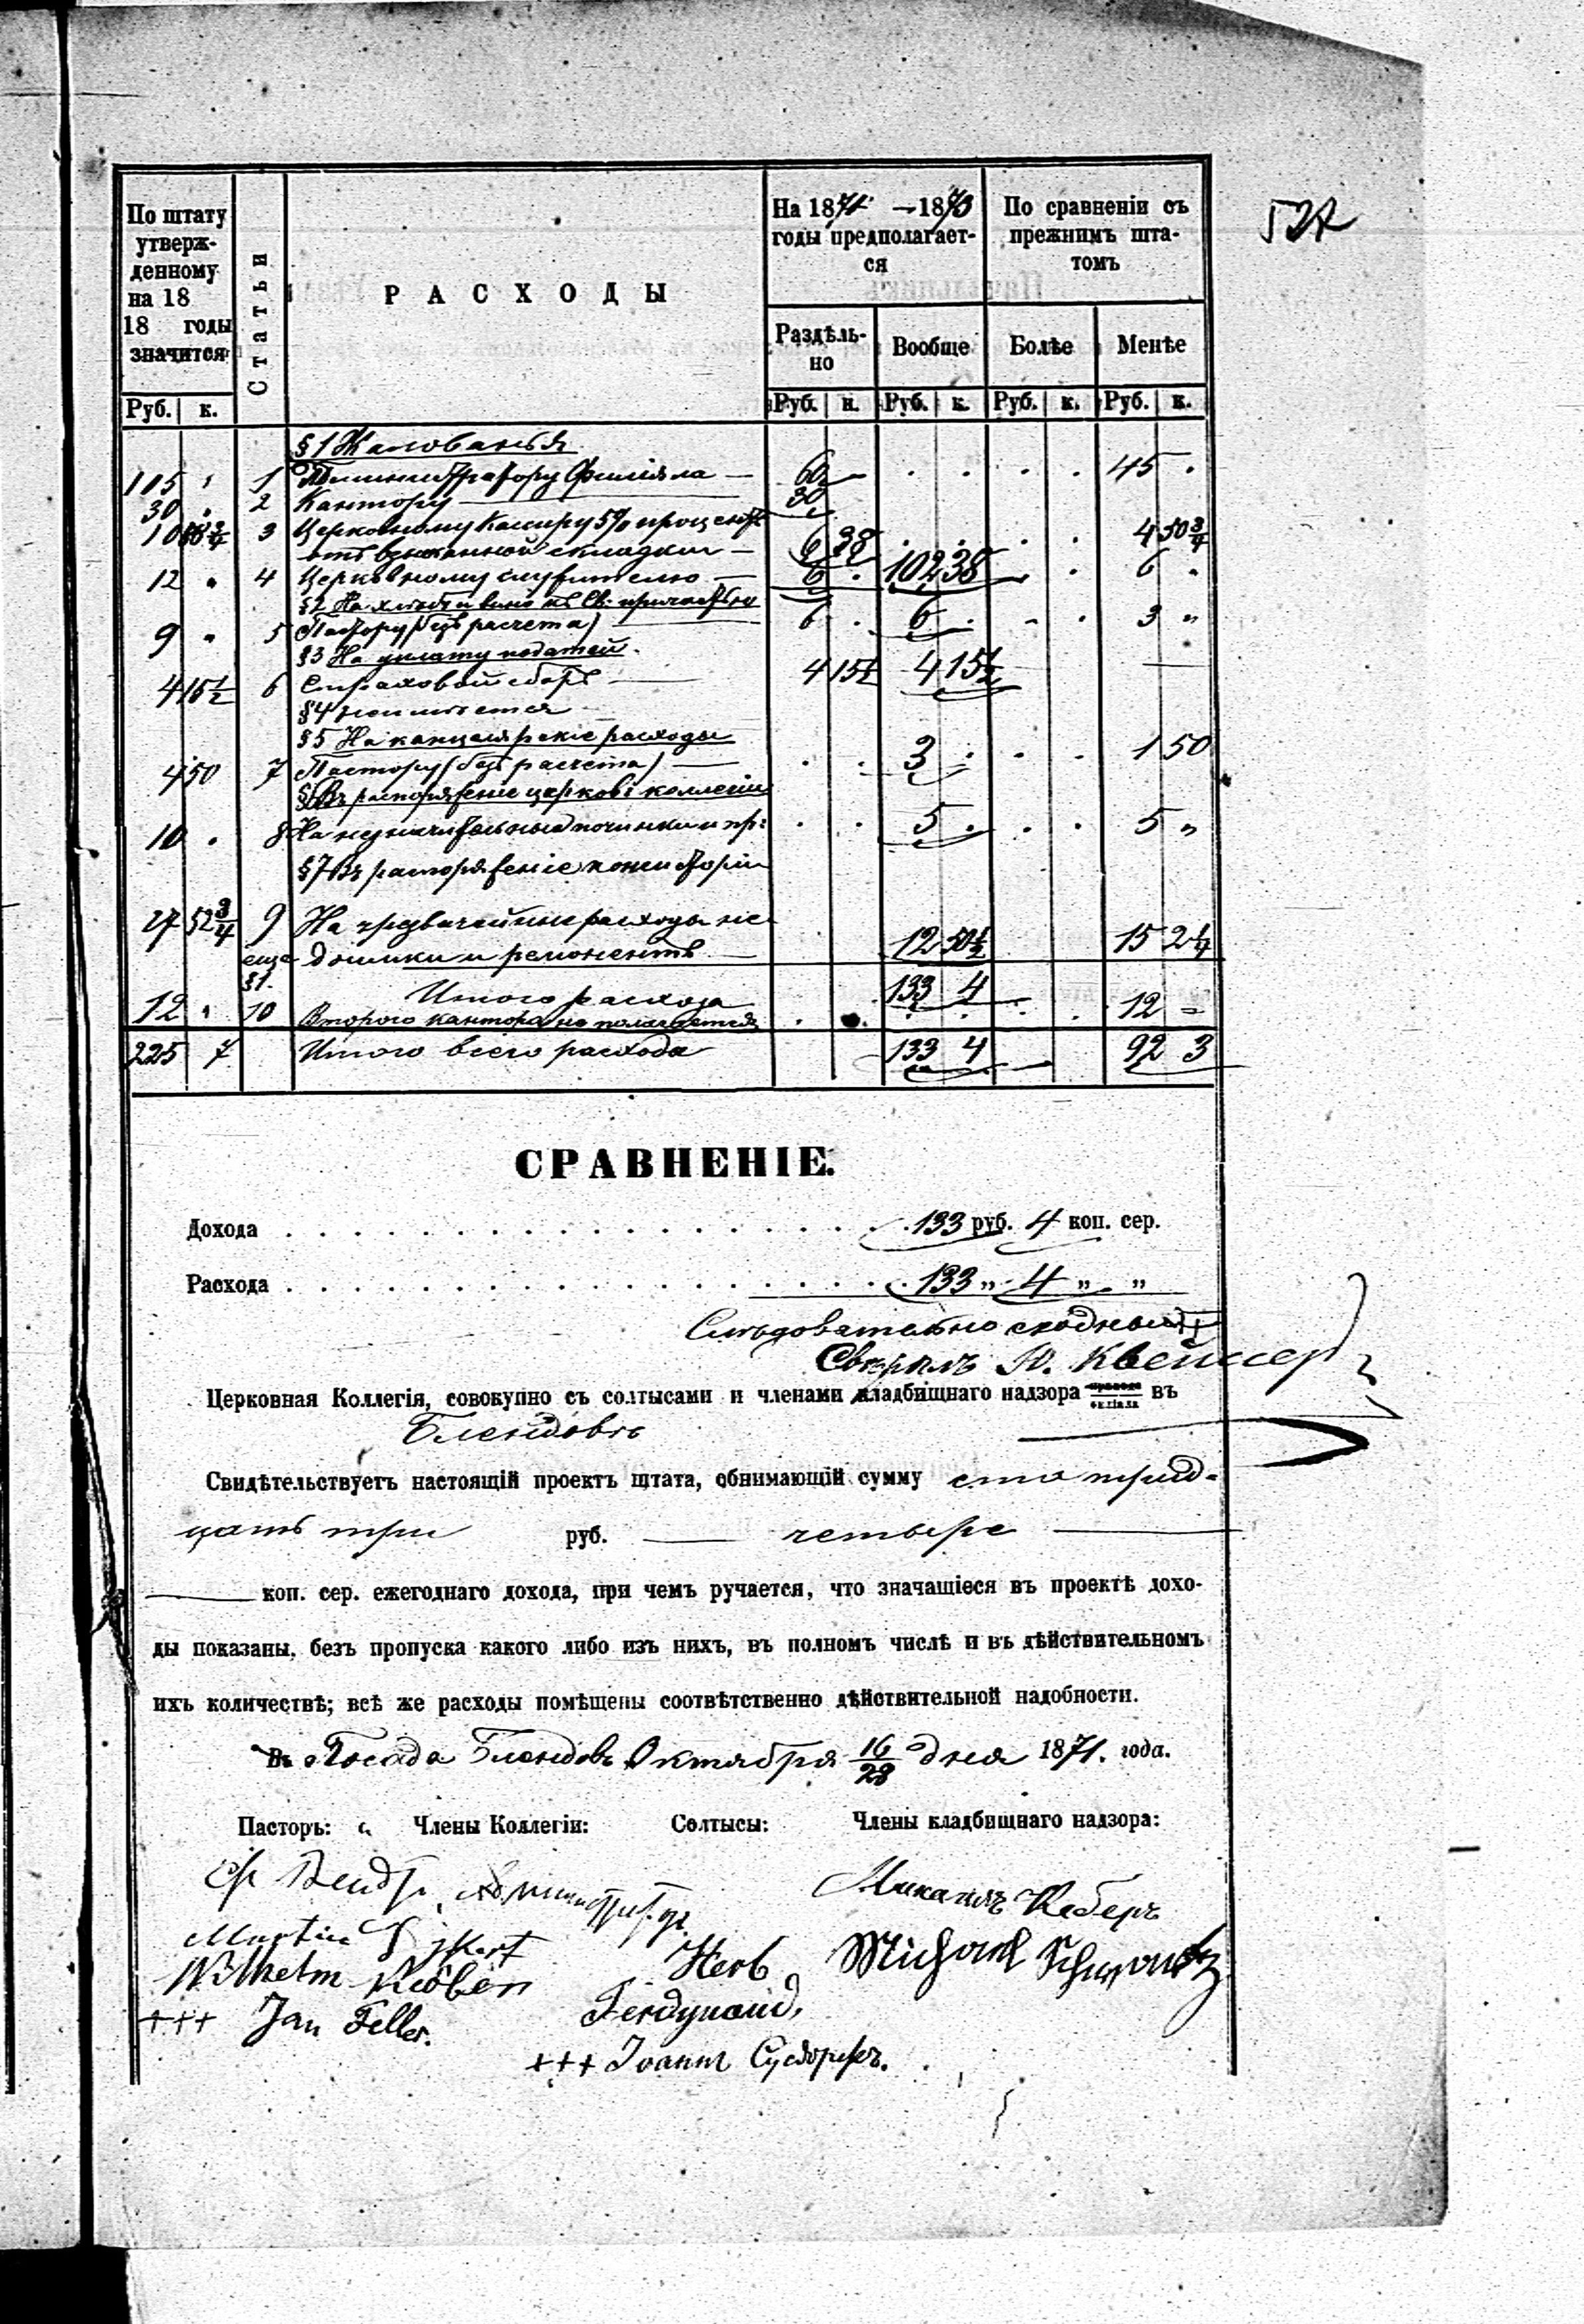 По штату утверж-денному на 18 18 годы значится
Статьи
РАСХОДЫ
На 1871 — 1873 годы предполагает-ся
По сравненіи съ прежнимъ шта-томъ
Раздѣль-но
Вообще
Болѣе
Менѣе
Руб. к. Руб. к. Руб. к. Руб. к. Руб. к.
§ 1 Жалованья
105 1 Филіяла — 60 45
30 2 Кантору — 30
10 88 3/4 3 Церковному Кассиру 5% процент 4 50 3/4
отъ складки — 6 38
12 4 Церковному служителю — 6 102 38 6
§2 На хлѣбъ и вино къ Св. причастью
9 5 Пастору (безъ расчета) 6 6 3 "
§3 На уплату податей.
4 15 1/2 6 Страховой сборъ 4 15 1/2 4 15 1/2
§4
§5 На канцелярскіе расходы
4 50 7 Пастору (безъ расчета) — 3 1 50
§6 Въ распоряженіе церковн коллегіи
10 8 На незначительныя починки и пр: 5 5 "
§7 Въ распоряженіе консисторіи
27 52 3/4 9 На чрезвычайные расходы не-
доимки и ремонентъ — 12 50 1/2 15 2 1/4
еще §1.
Итого расхода 133 4
12 10 Второго кантора не полагается 12 =
225 7 Итого всего расхода 133 4 92 3
527
СРАВНЕНІЕ.
Дохода 133 руб. 4 коп. сер.
Расхода 133 „ 4 „ „
Слѣдовательно сходный
Свѣрилъ Ю. Квейссер
Церковная Коллегія, совокупно съ солтысами и членами кладбищнаго надзора въ
Блендовѣ
Свидѣтельствуетъ настоящій проектъ штата, обнимающій сумму сто трид-
цать три руб. — четыре —
— коп. сер. ежегоднаго дохода, при чемъ ручается, что значащіеся въ проектѣ дохо-
ды показаны, безъ пропуска какого либо изъ нихъ, въ полномъ числѣ и въ дѣйствительномъ
ихъ количествѣ; всѣ же расходы помѣщены соотвѣтственно дѣйствительной надобности.
Въ Посада Блендовъ Октября 16/28 дня 1871. года.
Пасторъ: Члены Коллегіи: Солтысы: Члены кладбищнаго надзора:
Martin
Wilhelm
Herb
Michael Schwartz
+++ Jan Feller.
Ferdynand,
+++